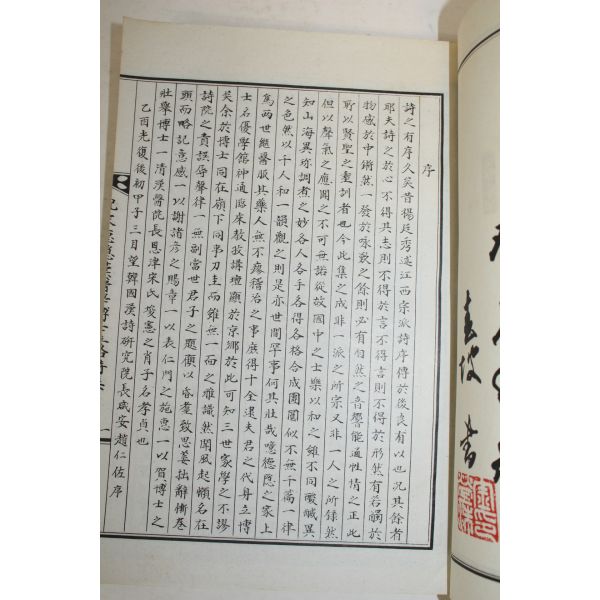 序
詩之有序久矣昔楊廷秀遂江西宗派詩序傳於後良有以也况其餘者
耶夫詩之於心不得其志則不得於言不得言則不得於形然有若觸於
物感於中鏘然一發於咏歌之餘則必有自然之音響能適性情之正此
所以賢聖之重訓者也今此集之成非一派之所宗又非一人之所錄然
但以聲氣之應閒之不可無諾從故國中之士樂以和之雖不同酸鹹異
知山海異珍調煮之妙各人各手各得各格合成團圓似不無千篇一律
之色然以千人和一韻觀之則是亦世間罕事何其壯哉噫德隱之家上
爲兩世繼醫服其藥人無不瘳稽治之事庶得十全逮夫君之代身立博
士名優學館神通臨床教按講壇廟於京鄉於此可知三世家學之不謬
矣余於博士同在嶺下同事刀圭而雖無一面之雅識然聞風起頗名在
詩院之責誤辱聲律一無副當世君子之題應以昏耄致思萎拙辭衝卷
頭而略記意感一以謝諸彦之賜章一以表仁門之施惠一以賀博士之
壯擧博士一清漢醫院長恩津宋氏埈憲之肖子名孝貞也
乙酉光復後初甲子三月望韓國漢詩硏究院長咸安趙仁佐序
一